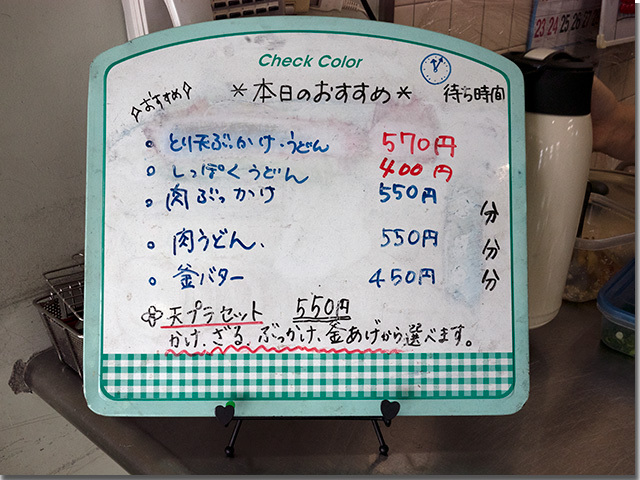 23 24 25 26
Check Color
おすすめ
*本日のおすすめ*
待ち時間
とり天ぶっかけ・うどん 570円
しっぽくうどん 400円
肉ぶっかけ 550円
分
肉うどん、 550円
分
釜バター 450円
分
天プラセット 550円
かけ、ざる、ぶっかけ、釜あげから選べます。